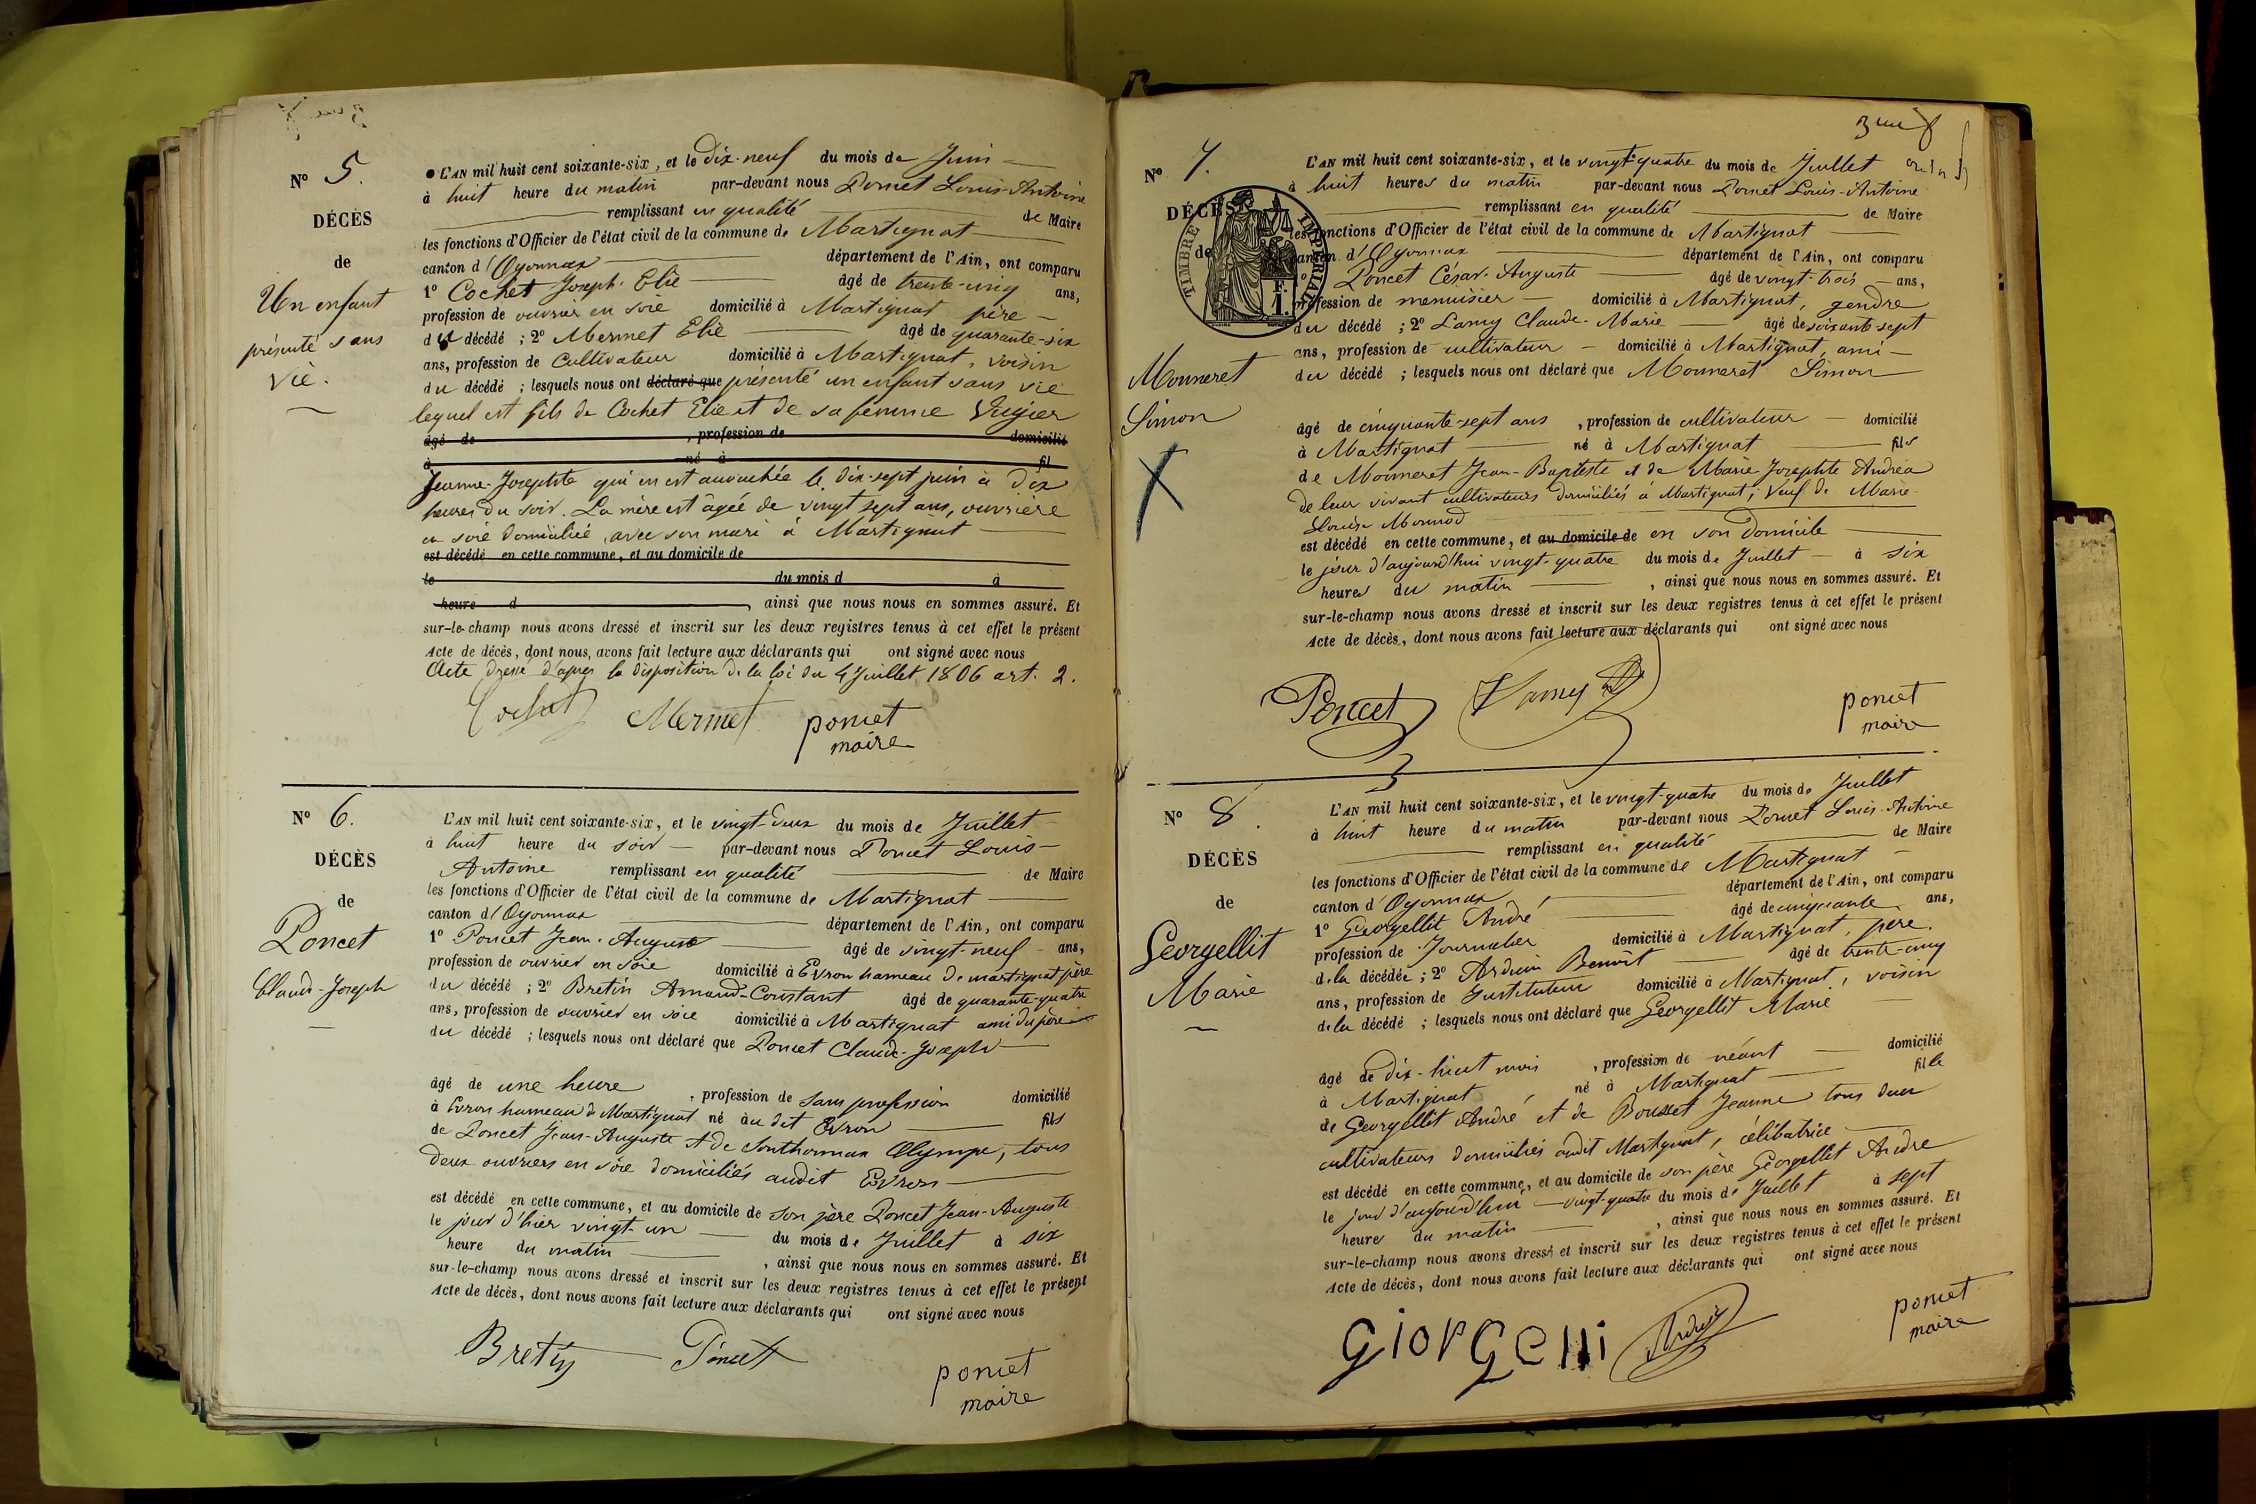 N° 5.
DÉCÈS
de
Un enfant
présenté sans
vie.
L'AN mil huit cent soixante-six, et le dix-neuf du mois de Juin
à huit heure du matin par-devant nous Poncet Louis-Antoine
remplissant en qualité de Maire
les fonctions d'Officier de l'état civil de la commune de Martignat
canton d'Oyonnax département de l'Ain, ont comparu
1° Cochet Joseph-Elie âgé de trente-cinq ans,
profession de ouvrier en soie domicilié à Martignat père
du décédé ; 2° Mermet Elie âgé de quarante-six
ans, profession de Cultivateur domicilié à Martignat, voisin
du décédé ; lesquels nous ont déclaré que présenté un enfant sans vie
lequel est fils de Cochet Elie et de sa femme Vugier
âgé de , profession de domicilié
à né à fil
Jeanne-Josephte qui en est accouchée le dix-sept juin à dix
heures du soir. La mère est âgée de vingt sept ans, ouvrière
en soie domiciliée avec son mari à Martignat
est décédé en cette commune, et au domicile de
le du mois d à
heure d , ainsi que nous nous en sommes assuré. Et
sur-le-champ nous avons dressé et inscrit sur les deux registres tenus à cet effet le présent
Acte de décès, dont nous avons fait lecture aux déclarants qui ont signé avec nous
Acte dressé d'après la disposition de la loi du 4 Juillet 1806 art. 2.
Cochet Mermet poncet
maire
N° 6.
DÉCÈS
de
Poncet
Claude-Joseph
L'AN mil huit cent soixante-six, et le vingt-deux du mois de Juillet
à huit heure du soir par-devant nous Poncet Louis-
Antoine remplissant en qualité de Maire
les fonctions d'Officier de l'état civil de la commune de Martignat
canton d'Oyonnax département de l'Ain, ont comparu
1° Poncet Jean-Auguste âgé de vingt-neuf ans,
profession de ouvrier en soie domicilié à Evron hameau de martignat père
du décédé ; 2° Bretin Amand-Constant âgé de quarante-quatre
ans, profession de ouvrier en soie domicilié à Martignat ami du père
du décédé ; lesquels nous ont déclaré que Poncet Claude-Joseph
âgé de une heure , profession de sans profession domicilié
à Evron hameau de Martignat né au dit Evron fils
de Poncet Jean-Auguste et de Sonthonnax Olympe, tous
deux ouvriers en soie domiciliés audit Evron
est décédé en cette commune, et au domicile de son père Poncet Jean-Auguste
le jour d'hier vingt-un du mois de Juillet à six
heure du matin , ainsi que nous nous en sommes assuré. Et
sur-le-champ nous avons dressé et inscrit sur les deux registres tenus à cet effet le présent
Acte de décès, dont nous avons fait lecture aux déclarants qui ont signé avec nous
Bretin Poncet poncet
maire
N° 7.
DÉCÈS
de
TIMBRE IMPÉRIAL
Monneret
Simon
L'AN mil huit cent soixante-six, et le vingt-quatre du mois de Juillet
à huit heures du matin par-devant nous Poncet Louis-Antoine
remplissant en qualité de Maire
les fonctions d'Officier de l'état civil de la commune de Martignat
canton d'Oyonnax département de l'Ain, ont comparu
Poncet César-Auguste âgé de vingt-trois ans,
profession de menuisier domicilié à Martignat, gendre
du décédé ; 2° Lamy Claude-Marie âgé de soixante sept
ans, profession de cultivateur domicilié à Martignat, ami
du décédé ; lesquels nous ont déclaré que Monneret Simon
âgé de cinquante-sept ans , profession de cultivateur domicilié
à Martignat né à Martignat fils
de Monneret Jean-Baptiste et de Marie Josephte Andréa
de leur vivant cultivateurs domiciliés à Martignat ; Veuf de Marie-
Louise Monnod
est décédé en cette commune, et au domicile de en son domicile
le jour d'aujourd'hui vingt-quatre du mois de Juillet à six
heures du matin , ainsi que nous nous en sommes assuré. Et
sur-le-champ nous avons dressé et inscrit sur les deux registres tenus à cet effet le présent
Acte de décès, dont nous avons fait lecture aux déclarants qui ont signé avec nous
Poncet Lamy poncet
maire
N° 8.
DÉCÈS
de
Georgellit
Marie
L'AN mil huit cent soixante-six, et le vingt-quatre du mois de Juillet
à huit heure du matin par-devant nous Poncet Louis-Antoine
remplissant en qualité de Maire
les fonctions d'Officier de l'état civil de la commune de Martignat
canton d'Oyonnax département de l'Ain, ont comparu
1° Georgellit André âgé de cinquante ans,
profession de Journalier domicilié à Martignat, père
de la décédée ; 2° Arduin Benoît âgé de trente-cinq
ans, profession de Instituteur domicilié à Martignat, voisin
de la décédé ; lesquels nous ont déclaré que Georgellit Marie
âgé de dix-huit mois , profession de néant domicilié
à Martignat né à Martignat fille
de Georgellit André et de Bousset Jeanne tous deux
cultivateurs domiciliés audit Martignat, célibatrice
est décédé en cette commune, et au domicile de son père Georgellit André
le jour d'aujourd'hui vingt-quatre du mois de Juillet à sept
heures du matin , ainsi que nous nous en sommes assuré. Et
sur-le-champ nous avons dressé et inscrit sur les deux registres tenus à cet effet le présent
Acte de décès, dont nous avons fait lecture aux déclarants qui ont signé avec nous
Giorgelli Arduin poncet
maire